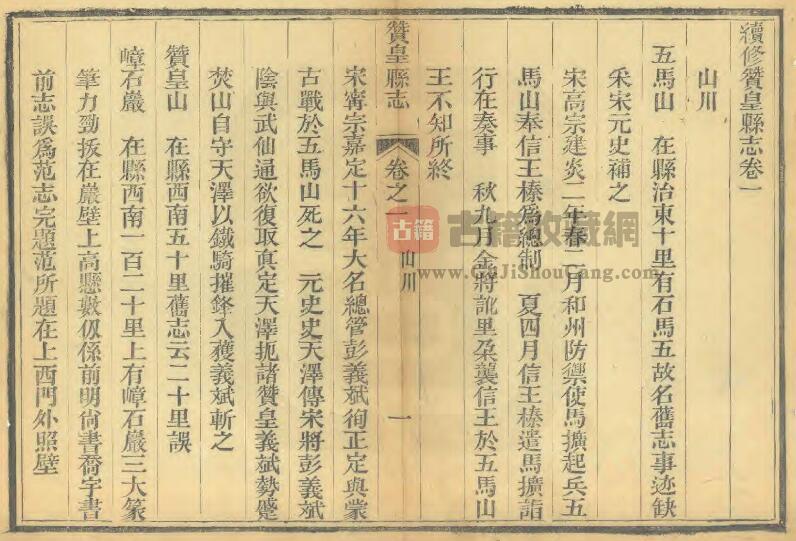 續修贊皇縣志卷一
山川
五馬山 在縣治東十里有石馬五故名舊志事迹缺
采宋元史補之
宋高宗建炎二年春二月和州防禦使馬擴起兵五
馬山奉信王榛爲總制 夏四月信王榛遣馬擴詣
行在奏事 秋九月金將訛里朶襲信王於五馬山
王不知所終
贊皇縣志 卷之一 山川 一
宋甯宗嘉定十六年大名總管彭義斌徇正定與蒙
古戰於五馬山死之 元史史天澤傳宋將彭義斌
陰與武仙通欲復取真定天澤扼諸贊皇義斌勢蹙
焚山自守天澤以鐵騎摧鋒入獲義斌斬之
贊皇山 在縣西南五十里舊志云二十里誤
嶂石巖 在縣西南一百二十里上有嶂石巖三大篆
筆力勁拔在巖壁上高懸數仭係前明尚書喬宇書
前志誤爲范志完題范所題在上西門外照壁
古籍 古籍收藏網
www.GuJiShouCang.com